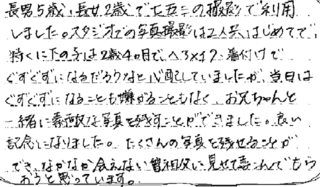 長男5歳、長女2歳で七五三の撮影で利用
しました。スタジオでの写真撮影は2人共はじめてで
特に下の子は2歳4ヶ月で、ヘアメイク・着付けで
ぐずぐずになるだろうなと心配していましたが、当日は
ぐずぐずになることも嫌がることもなく、お兄ちゃんと
一緒に素敵な写真を残すことができました。良い
記念になりました。たくさんの写真を残せることが
でき、なかなか会えない曽祖父に見せて喜んでもら
おうと思っています。